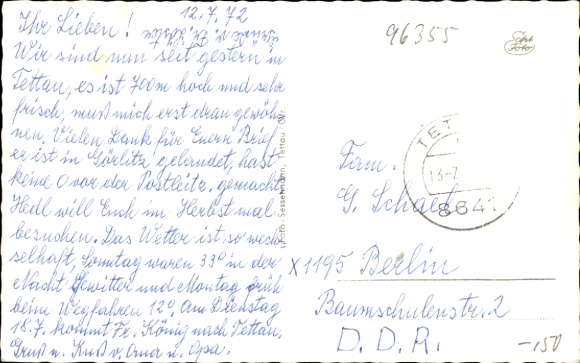 12.7.72
Ihr Lieben!
Wir sind nun seit gestern in
Tettau, es ist 700m hoch und sehr
frisch, muß mich erst dran gewöh-
nen. Vielen Dank für Euern Brief,
er ist in Görlitz gelandet, hast
keine O vor der Postleitz. gemacht
Hedl will Euch im Herbst mal
besuchen. Das Wetter ist so wech-
selhaft, Sonntag waren 33° in der
Nacht Gewitter und Montag früh
beim Wegfahren 12°. Am Dienstag
18.7. kommt Fr. König nach Tettau.
Gruß u. Kuß v. Oma u. Opa.
Foto-Sesselmann, Tettau
96355
Echt
Foto
TET
13-7
864
Fam.
G. Schaede
X 1195 Berlin
Baumschulenstr. 2
D.D.R.
-,50